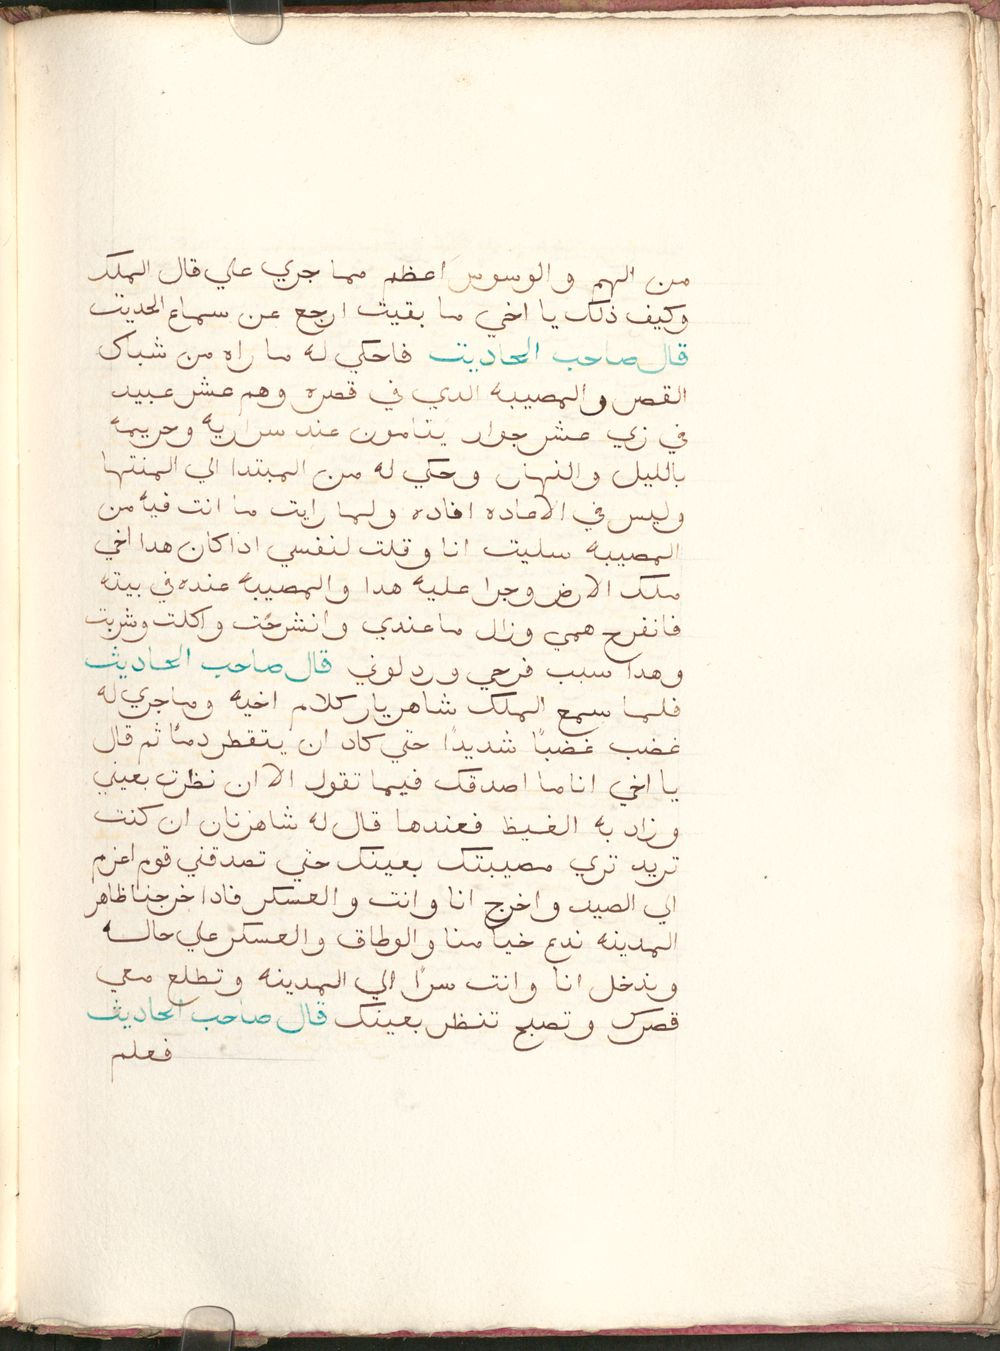 من الهم والوسوس اعظم مما جري علي قال الملك
وكيف ذلك يا اخي ما بقيت ارجع عن سماع الحديت
قال صاحب الحاديت فاحكي له ما راه من شباك
القصر والمصيبه الدي في قصره وهم عشر عبيد
في زي عشر جوار ينامون عند سراريه وحريمه
بالليل والنهار وحكي له من المبتدا الي المنتها
وليس في الاعاده افاده ولما رايت ما انت فيه من
المصيبه سليت انا وقلت لنفسي اداكان هدا اخي
ملك الارض وجرا عليه هدا والمصيبه عنده في بيته
فانفرج همي وزال ماعندي وانشرحت واكلت وشربت
وهدا سبب فرحي ورد لوني قال صاحب الحاديث
فلما سمع الملك شاهريار كلام اخيه وماجري له
غضب غضبًا شديدًا حتي كاد ان يتقطر دمًا ثم قال
يا اخي اناما اصدقك فيما تقول الا ان نظرت بعيني
وزاد به الغيظ فعندها قال له شاهزنان ان كنت
تريد تري مصيبتك بعينك حتي تصدقني قوم اعزم
الي الصيد واخرج انا وانت والعسكر فادا خرجنا ظاهر
المدينه ندع خيامنا والوطاق والعسكر علي حاله
وندخل انا وانت سرًا الي المدينه وتطلع معي
قصرك وتصبح تنظر بعينك قال صاحب الحاديث
فعلم